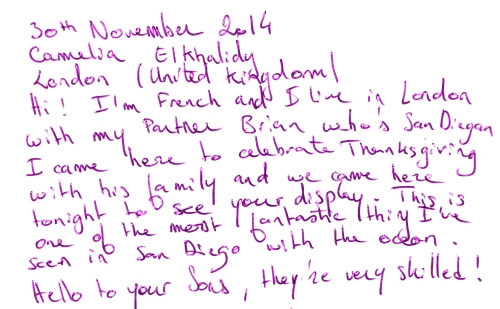 30th November 2014
Camelia Elkhalidy
London (United Kingdom)
Hi! I'm French and I live in London
with my Partner Brian who's San Diegan
I came here to celebrate Thanksgiving
with his family and we came here
tonight to see your display. This is
one of the most fantastic thing I've
seen in San Diego with the ocean.
Hello to your Sons, they're very skilled!